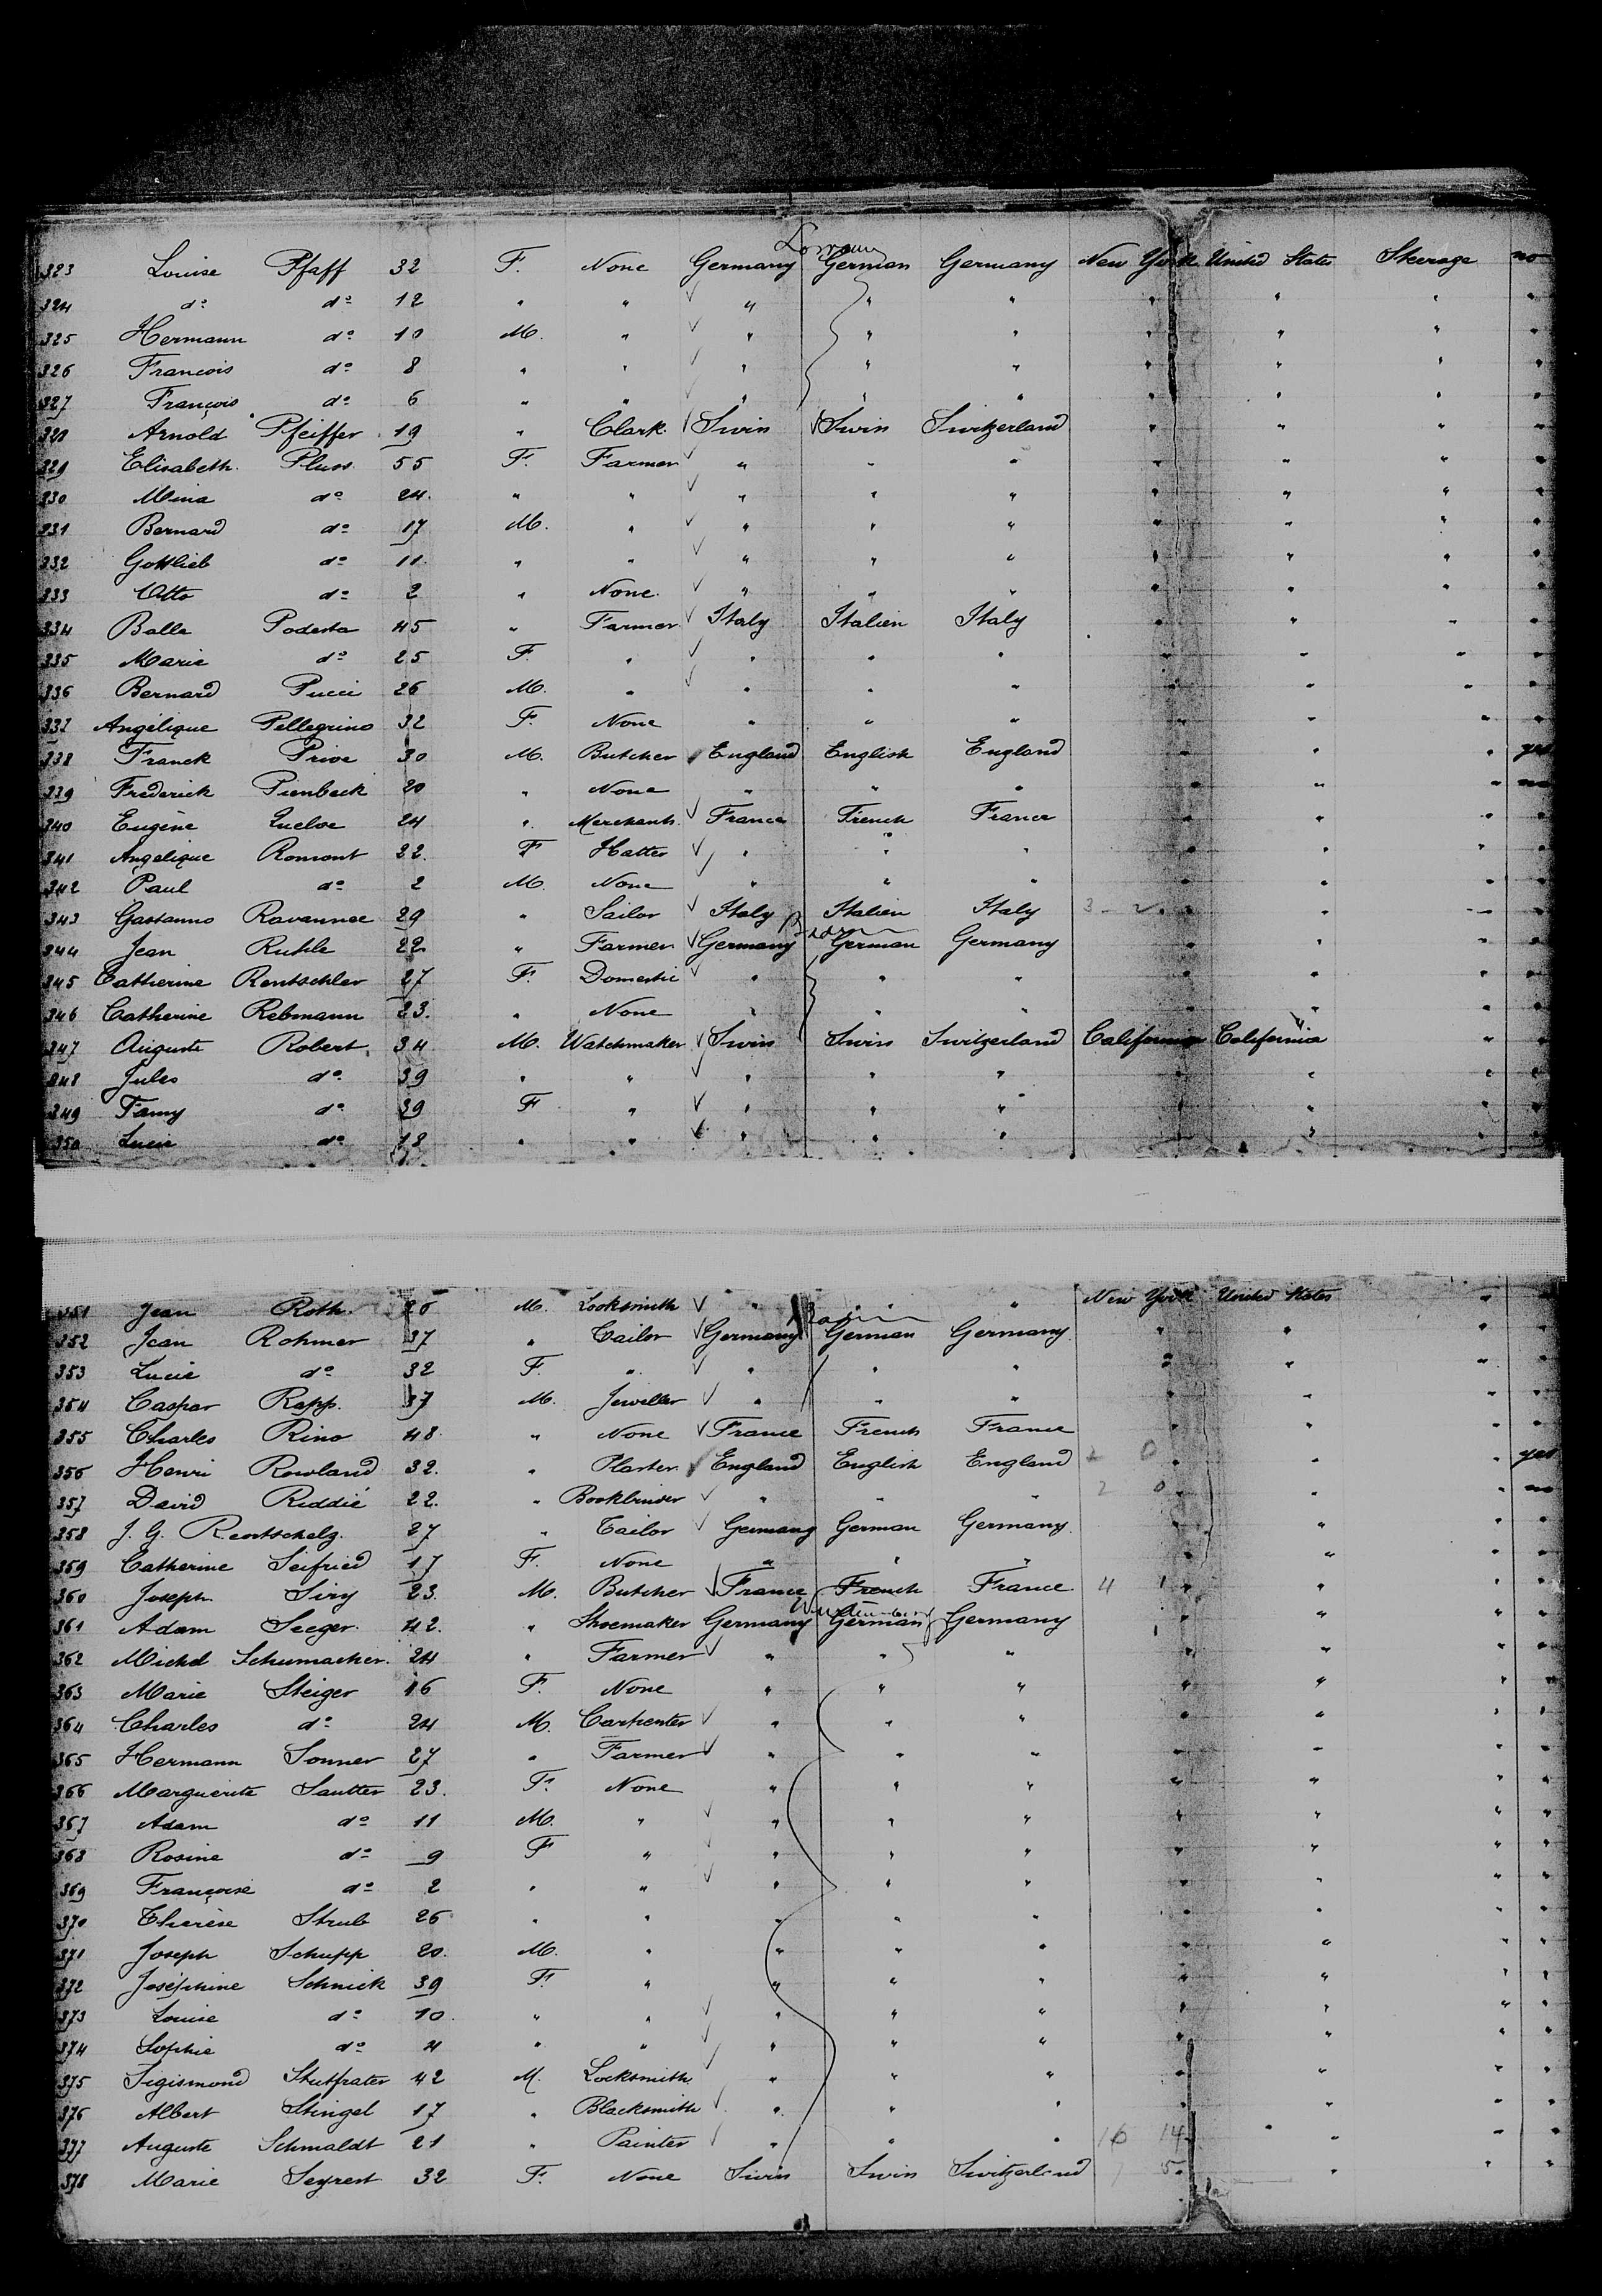 Lorraine
323 Louise Pfaff 32 F. None Germany German Germany New York United States Steerage no
324 do do 12 " " " " " " " " "
325 Hermann do 10 M. " " " " " " " "
326 Francois do 8 " " " " " " " " "
327 François do 6 " " " " " " " " "
328 Arnold Pfeiffer 19 " Clark Swiss Swiss Switzerland " " " "
329 Elisabeth Pluss 55 F. Farmer " " " " " " "
330 Mina do 24 " " " " " " " " "
331 Bernard do 17 M. " " " " " " " "
332 Gottlieb do 11 " " " " " " " " "
333 Otto do 2 " None " " " " " " "
334 Balla Podesta 45 " Farmer Italy Italien Italy " " " "
335 Marie do 25 F. " " " " " " " "
336 Bernard Pucci 26 M. " " " " " " " "
337 Angélique Pellegrino 32 F. None " " " " " " "
338 Franck Price 30 M. Butcher England English England " " " yes
339 Frederick Pienbeck 20 " None " " " " " " no
340 Eugène Lucloe 24 " Merchants France French France " " " "
341 Angélique Romont 22 F Hatter " " " " " " "
342 Paul do 2 M. None " " " " " " "
343 Gastanno Ravannee 29 " Sailor Italy Italien Italy 3 - 2 " " " "
Baden
344 Jean Ruhle 22 " Farmer Germany German Germany " " " "
345 Catherine Rentschler 27 F. Domestic " " " " " " "
346 Catherine Rebmann 23 " None " " " " " " "
347 Auguste Robert 34 M. Watchmaker Swiss Swiss Switzerland California California " "
348 Jules do 39 " " " " " " " " "
349 Fanny do 39 F " " " " " " " "
350 Lucie do 18 " " " " " " " " "
351 Jean Roth 26 M. Locksmith " " " New York United States " "
Baden
352 Jean Rohmer 37 " Tailor Germany German Germany " " " "
353 Lucie do 32 F. " " " " " " " "
354 Caspar Rapp 37 M. Jeweller " " " " " " "
355 Charles Rino 48 " None France French France " " " "
356 Henri Rowland 32 " Plaster England English England 2 0 " " " yes
357 David Riddié 22 " Bookbinder " " " 2 0 " " " no
358 J. G. Rentschelz 27 " Tailor Germany German Germany " " " "
359 Catherine Seifried 17 F. None " " " " " " "
360 Joseph Siry 23 M. Butcher France French France 4 1 " " " "
Wurttemberg
361 Adam Seeger 42 " Shoemaker Germany German Germany 1 " " " "
362 Michel Schumacher 24 " Farmer " " " " " " "
363 Marie Steiger 16 F. None " " " " " " "
364 Charles do 24 M. Carpenter " " " " " " "
365 Hermann Sonner 27 " Farmer " " " " " " "
366 Marguerite Sautter 23 F. None " " " " " " "
367 Adam do 11 M. " " " " " " " "
368 Rosine do 9 F " " " " " " " "
369 Françoise do 2 " " " " " " " " "
370 Therèse Strub 26 " " " " " " " " "
371 Joseph Schupp 20 M. " " " " " " " "
372 Joséphine Schnick 39 F. " " " " " " " "
373 Louise do 10 " " " " " " " " "
374 Sophie do 4 " " " " " " " " "
375 Sigismond Stutfrater 42 M. Locksmith " " " " " " "
376 Albert Stingel 17 " Blacksmith " " " " " " "
377 Auguste Schmaldt 21 " Painter " " " 16 14 " " " "
378 Marie Seyrest 32 F. None Swiss Swiss Switzerland 1 5 " " " "